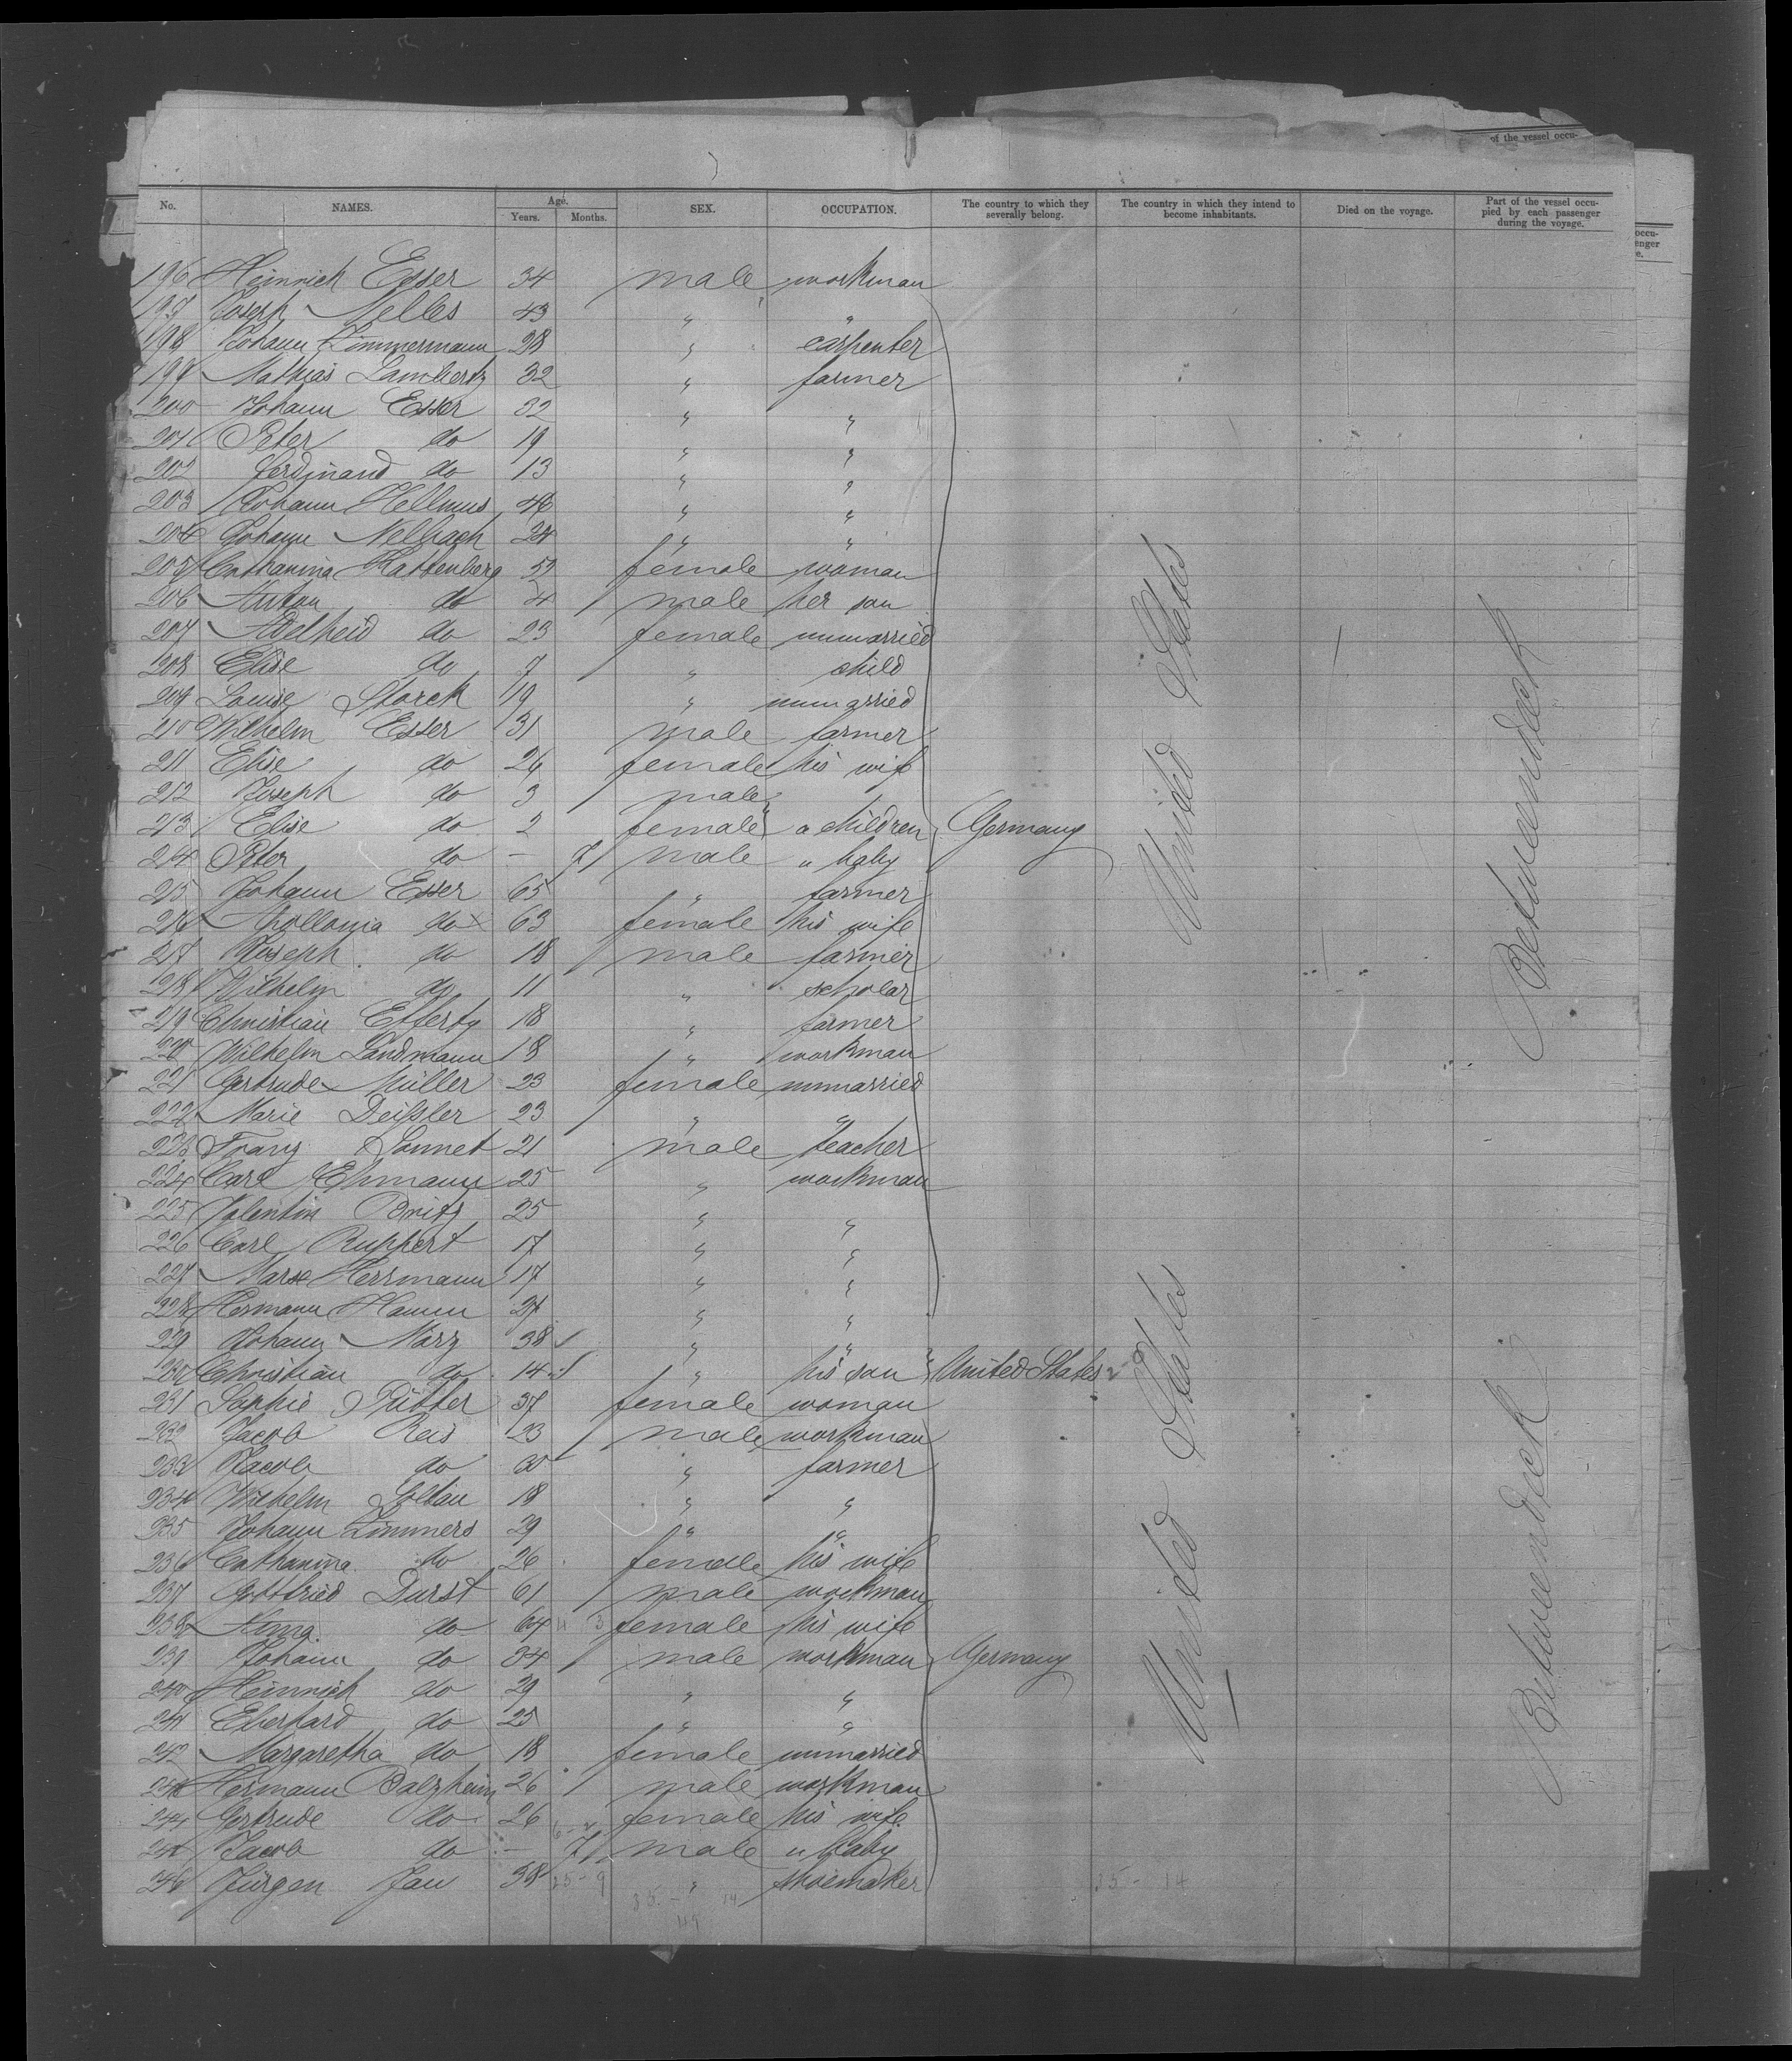 of the vessel occu-
No. NAMES. Age. Years. Months. SEX. OCCUPATION. The country to which they severally belong. The country in which they intend to become inhabitants. Died on the voyage. Part of the vessel occupied by each passenger during the voyage.
196 Heinrich Esser 34 male workman
197 Joseph Nelles 43 " "
198 Johann Zimmermann 28 " carpenter
199 Mathias Lambertz 32 " farmer
200 Johann Esser 32 " "
201 Peter do 19 " "
202 Ferdinand do 13 " "
203 Johann Hellmus 46 " "
204 Johann 24 " "
205 Catharina Hattenberg 52 female woman
206 Anton do 4 male her son
207 Adelheid do 23 female unmarried
208 Elise do 7 " child
209 Louise Storck 19 " unmarried
210 Wilhelm Esser 31 male farmer
211 Elise do 24 female his wife
212 Joseph do 3 male
213 Elise do 2 female " children Germany
214 Peter do - 7 male " baby
215 Johann Esser 65 " farmer
216 Apollonia do 63 female his wife
217 Joseph do 18 male farmer
218 Wilhelm do 11 " scholar
219 Christian Efferty 18 " farmer
220 Wilhelm Landmann 18 " workman
221 Gertrude Müller 23 female unmarried
222 Marie Deißler 23 " "
223 Franz Sonnet 21 male teacher
224 Carl Ehmann 25 " workman
225 Valentin Britz 25 " "
226 Carl Ruppert 17 " "
227 Marx Herrmann 17 " "
228 Hermann Hamm 27 " "
229 Johann März 38 " "
230 Christian do 14 " his son United States
231 Sophie Rütter 37 female woman
232 Jacob Reis 23 male workman
233 Jacob do 30 " farmer
234 Wilhelm Soltau 18 " "
235 Johann Zimmers 29 " "
236 Catharina do 26 female his wife
237 Gottfried Durst 61 male workman
238 Anna do 64 female his wife
239 Johann do 34 male workman Germany
240 Heinrich do 29 " "
241 Eberhard do 25 " "
242 Margaretha do 18 female unmarried
243 Hermann Balzheim 26 male workman
244 Gertrude do 26 female his wife
245 Jacob do - 7 male " baby
246 Jürgen Jau 38 " shoemaker
United States
United States
Betweendeck
Betweendeck
35 - 14